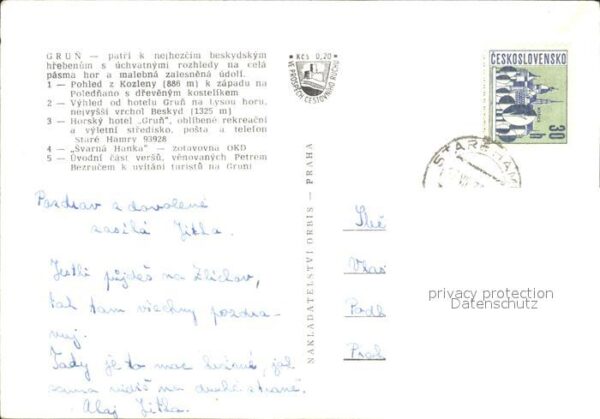 GRUŇ — patří k nejhezčím beskydským
hřebenům s úchvatnými rozhledy na celá
pásma hor a malebná zalesněná údolí.
1 — Pohled z Kozleny (886 m) k západu na
Poledňano s dřevěným kostelíkem
2 — Výhled od hotelu Gruň na Lysou horu,
nejvyšší vrchol Beskyd (1325 m)
3 — Horský hotel „Gruň", oblíbené rekreační
a výletní středisko, pošta a telefon
Staré Hamry 93928
4 — „Švarná Hanka" — zotavovna OKD
5 — Úvodní část veršů, věnovaných Petrem
Bezručem k uvítání turistů na Gruni
Kčs 0,20
VE PROSPĚCH CESTOVNÍHO RUCHU
ČESKOSLOVENSKO
30 h
STARÉ HAM
NAKLADATELSTVÍ ORBIS — PRAHA
Pozdrav z dovolené
zasílá Jitka.
Jestli půjdeš na Zlíchov,
tak tam všechny pozdra-
vuj.
Tady je to moc krásné, jak
sama vidíš na druhé straně.
Ahoj Jitka.
Sleč
Vlas
Podb
Prah
privacy protection
Datenschutz